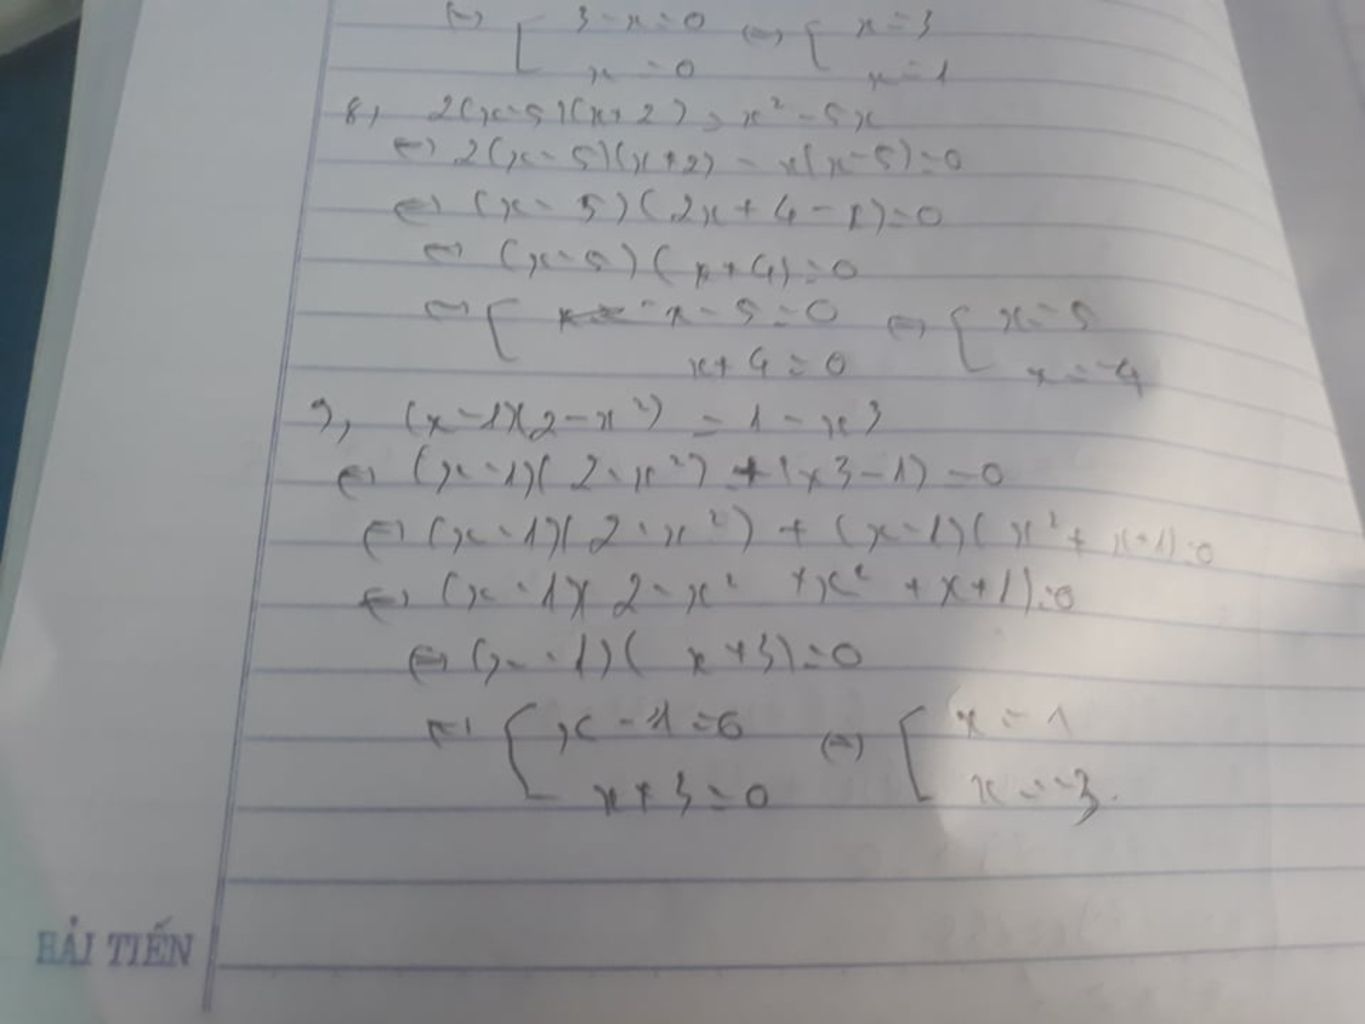 ⇔ [ 3 - x = 0 ⇔ [ x = 3
x = 0 x = 1
8, 2(x-5)(x+2) = x² - 5x
⇔ 2(x-5)(x+2) - x(x-5) = 0
⇔ (x-5)(2x+4-x) = 0
⇔ (x-5)(x+4) = 0
⇔ [ x - 5 = 0 ⇔ [ x = 5
x + 4 = 0 x = -4
9, (x-1)(2-x²) = 1 - x³
⇔ (x-1)(2-x²) + (x³-1) = 0
⇔ (x-1)(2-x²) + (x-1)(x²+x+1) = 0
⇔ (x-1)(2-x² + x² + x+1) = 0
⇔ (x-1)(x+3) = 0
⇔ [ x - 1 = 0 ⇔ [ x = 1
x + 3 = 0 x = -3.
HẢI TIẾN